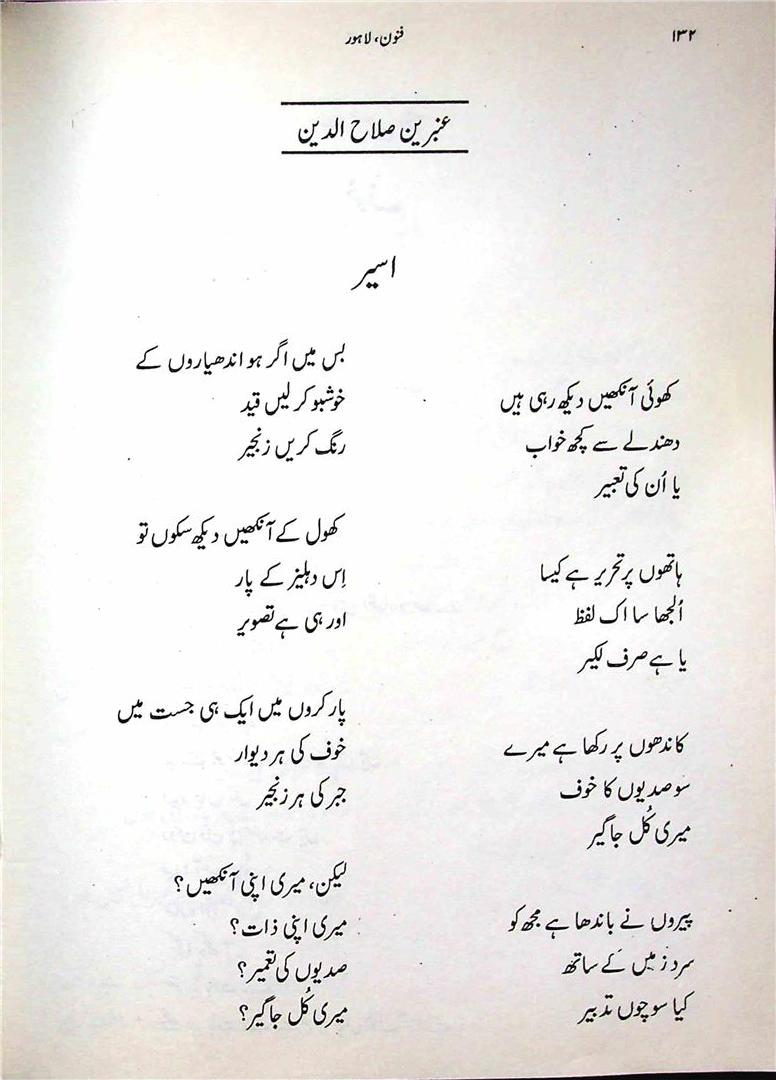 ۱۳۲
فنون، لاہور
عنبرین صلاح الدین
اسیر
کھوئی آنکھیں دیکھ رہی ہیں
دھندلے سے کچھ خواب
یا اُن کی تعبیر
ہاتھوں پر تحریر ہے کیسا
اُلجھا سا اک لفظ
یا ہے صرف لکیر
کاندھوں پر رکھا ہے میرے
سو صدیوں کا خوف
میری کُل جاگیر
پیروں نے باندھا ہے مجھ کو
سرد زمیں کے ساتھ
کیا سوچوں تدبیر
بس میں اگر ہو اندھیاروں کے
خوشبو کر لیں قید
رنگ کریں زنجیر
کھول کے آنکھیں دیکھ سکوں تو
اِس دہلیز کے پار
اور ہی ہے تصویر
پار کروں میں ایک ہی جست میں
خوف کی ہر دیوار
جبر کی ہر زنجیر
لیکن، میری اپنی آنکھیں؟
میری اپنی ذات؟
صدیوں کی تعمیر؟
میری کُل جاگیر؟